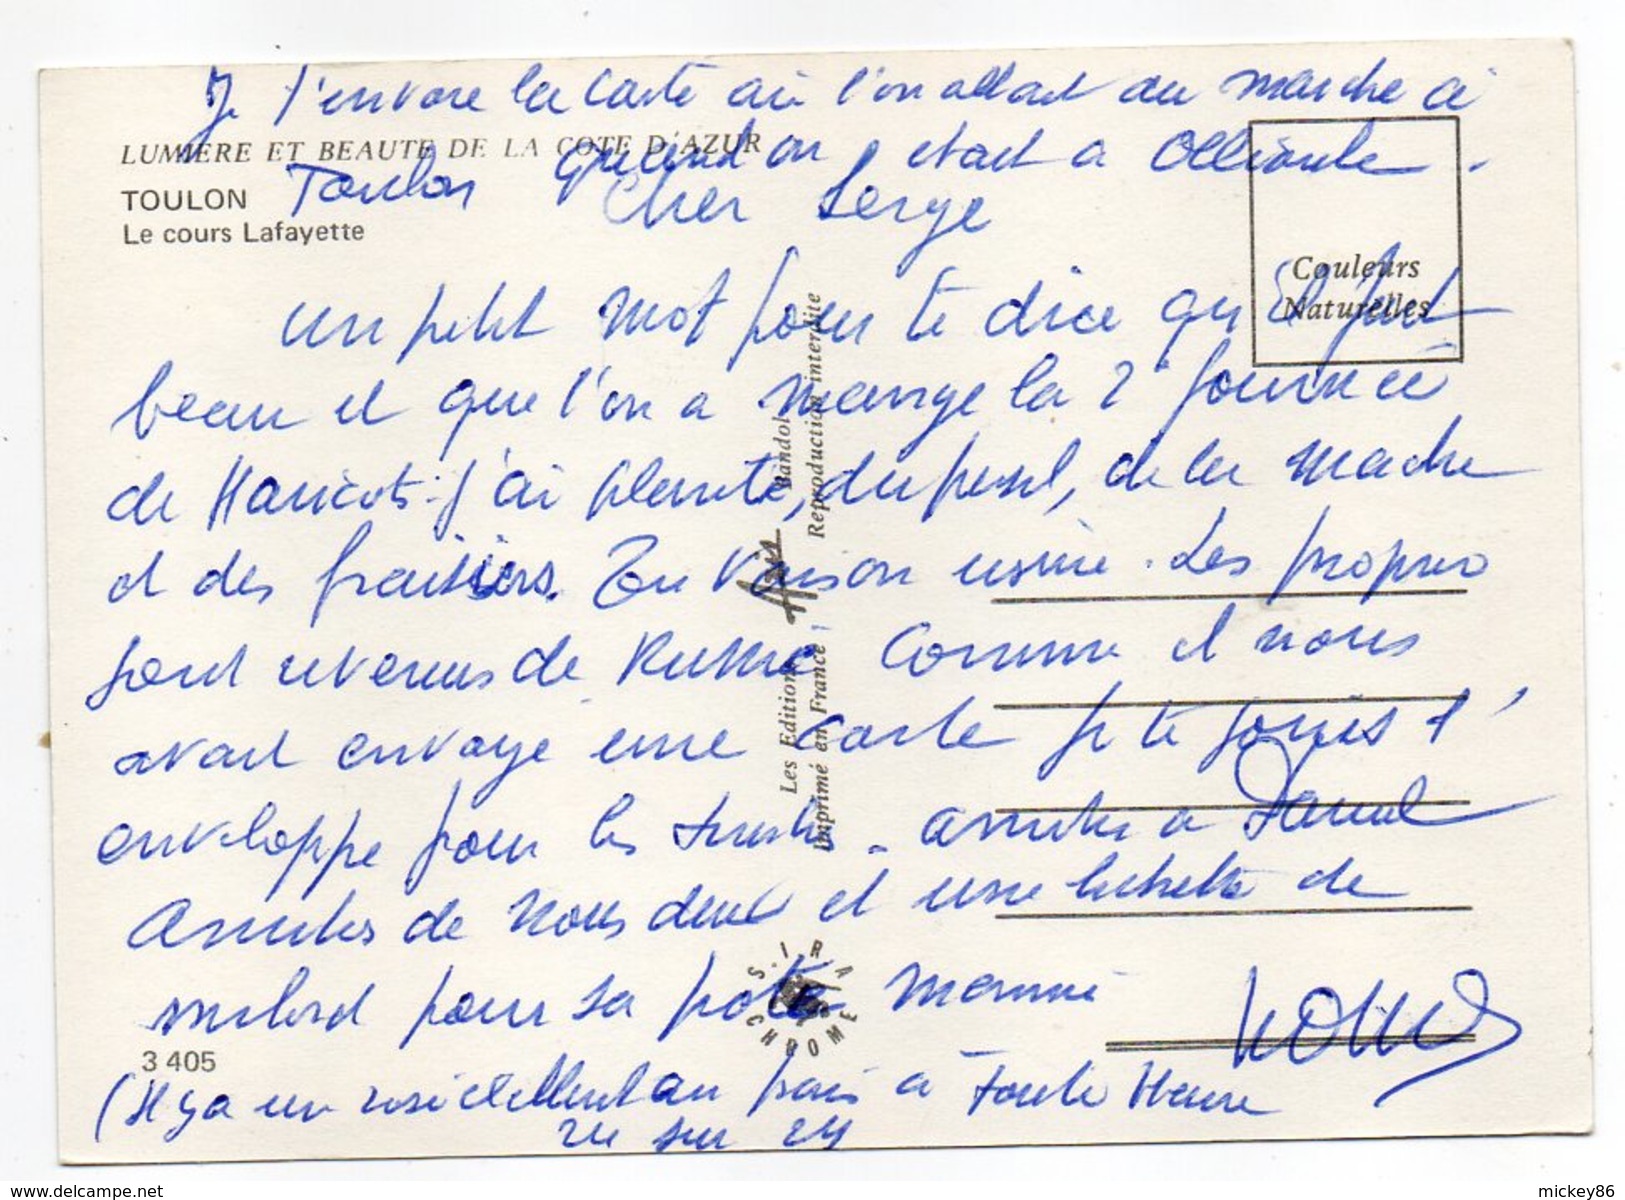 Je t'envoie la carte où l'on allait au marché à
Toulon quand on était à Ollioule.
LUMIERE ET BEAUTE DE LA COTE D'AZUR
TOULON
Le cours Lafayette
Couleurs
Naturelles
Cher Serge
un petit mot pour te dire qu'il fait
beau et que l'on a mangé la 2e fournée
de Haricots. J'ai planté, du persil, de la mache
et des fraisiers. En Vaison usine. Les proprio
sont revenus de Russie comme il nous
avait envoyé une carte je te joins l'
enveloppe pour les timbres. amitiés à Daniel
Amitiés de nous deux et une lichette de
milord pour sa pote mamie
(Il y a un rosé excellent au pays à Toute Heure
24 sur 24
3 405
Les Editions Aris Bandol
Imprimé en France Reproduction interdite
S.IRA
CHROME
mickey86
www.delcampe.net